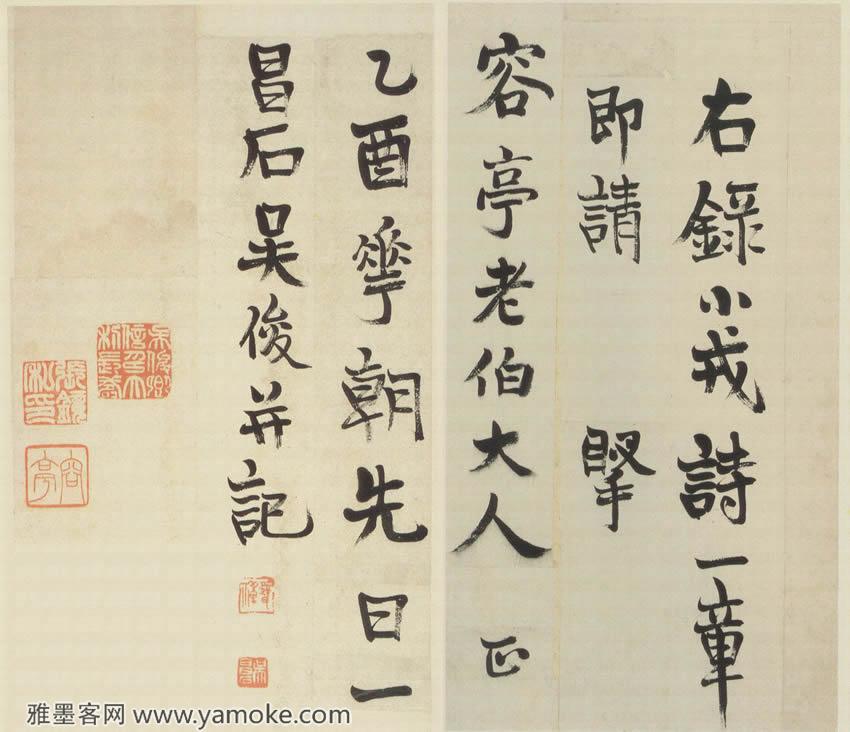 右錄小戎詩一章
即請 掔
容亭老伯大人 正
乙酉華朝先日一
昌石吳俊并記
容亭
雅墨客网 www.yamoke.com